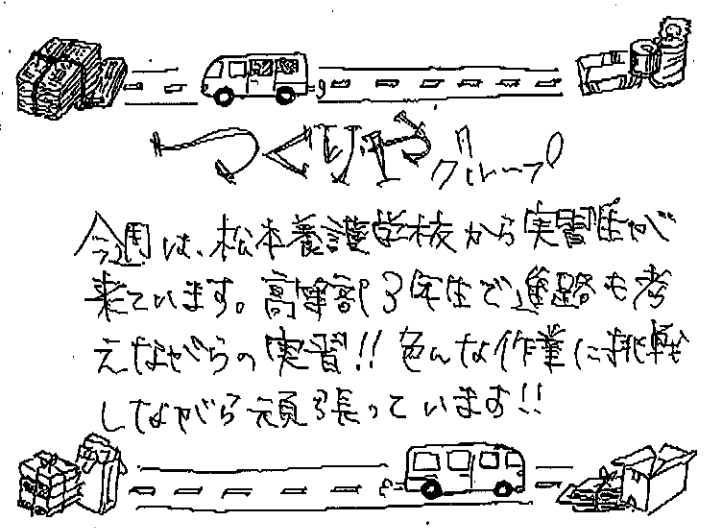 つくりやグループ
今週は、松本養護学校から実習生が
来ています。高等部3年生で進路も考
えながらの実習!! 色んな作業に挑戦
しながら頑張っています!!